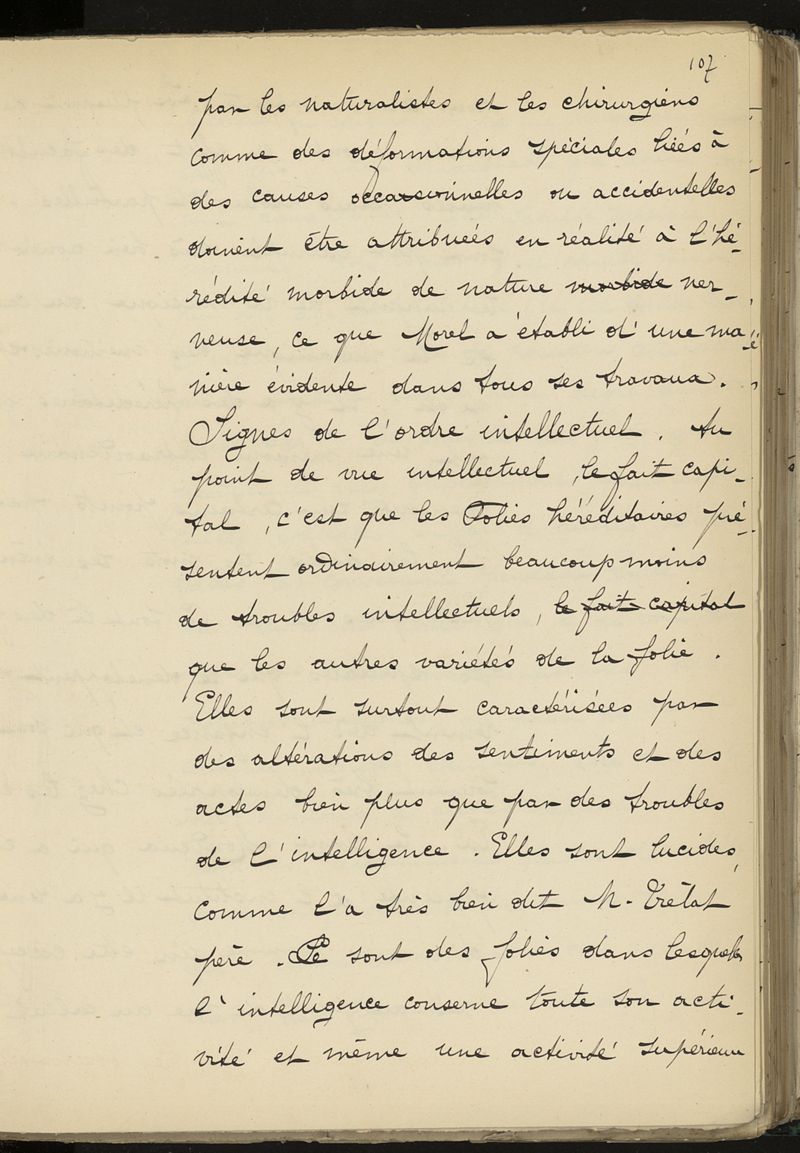 107
par les naturalistes et les chirurgiens
comme des déformations spéciales liées à
des causes occasionnelles ou accidentelles
doivent être attribuées en réalité à l'hé-
rédité morbide de nature morbide ner-
veuse, ce que Morel a établi d'une ma-
nière évidente dans tous ses travaux.
Signes de l'ordre intellectuel. Au
point de vue intellectuel, le fait capi-
tal, c'est que les Folies héréditaires pré-
sentent ordinairement beaucoup moins
de troubles intellectuels, le fait capital
que les autres variétés de la folie.
Elles sont surtout caractérisées par
des altérations des sentiments et des
actes bien plus que par des troubles
de l'intelligence. Elles sont lucides,
comme l'a très bien dit M. Trélat
père. Ce sont des folies dans lesquelles
l'intelligence conserve toute son acti-
vité et même une activité supérieure